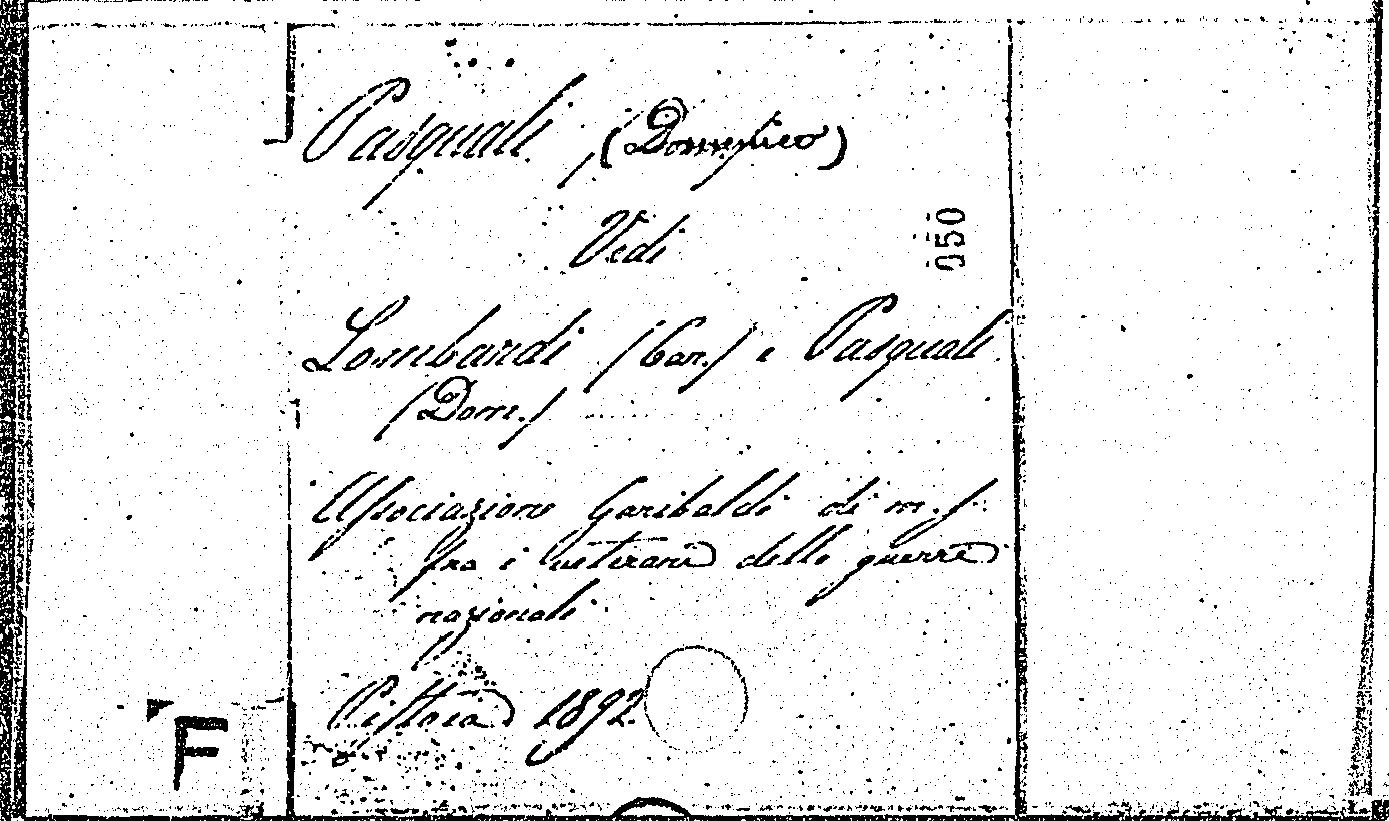 Pasquali, (Domenico)
Vedi
050
Lombardi (Car.) e Pasquali
(Dom.)
Associazione Garibaldi di m. s.
fra i veterani delle guerre
nazionali
Pistoia 1892.
F